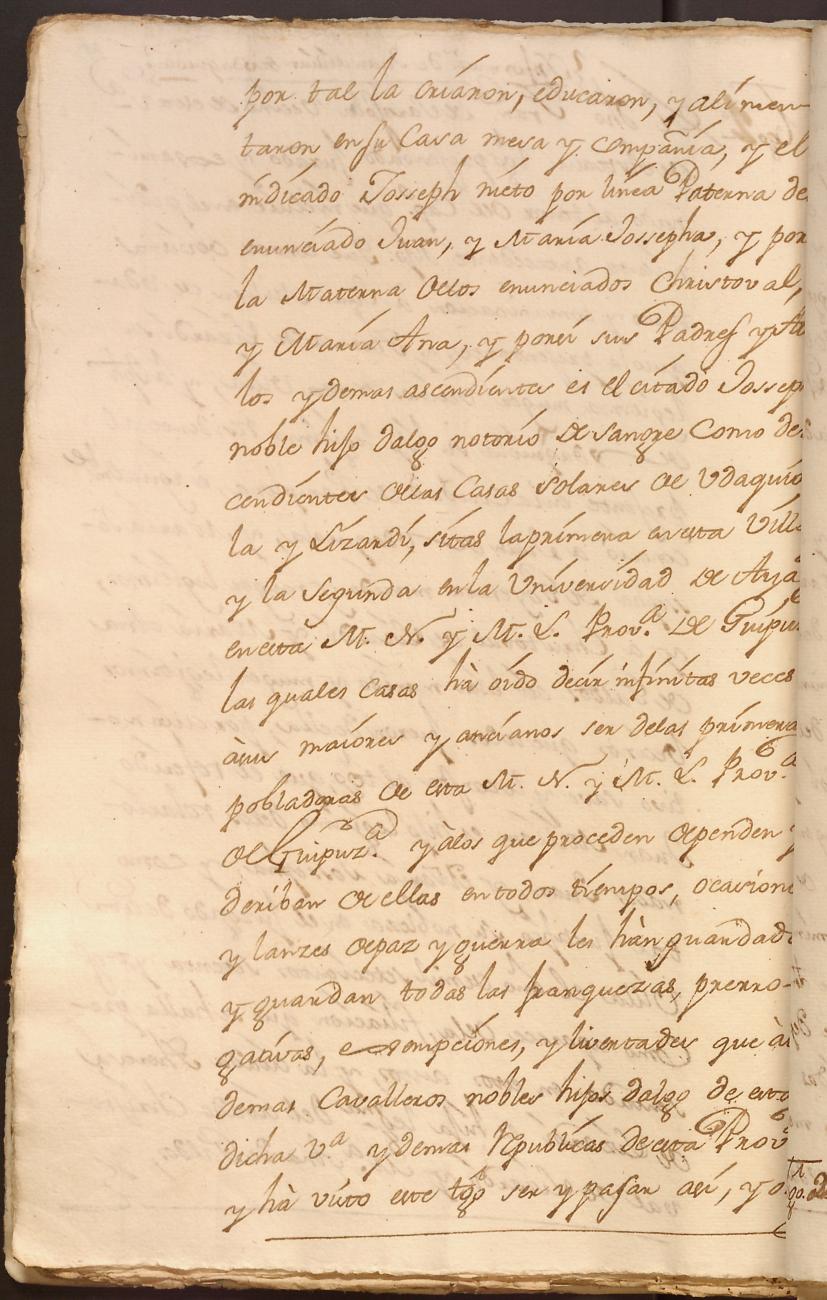 por tal la criaron, educaron, y alimen
taron en su Casa mesa y compañia, y el
indicado Josseph nieto por linea Paterna de
enunciado Juan, y Maria Jossepha, y por
la Materna de los enunciados Christoval,
y Maria Ana, y por si sus Padres y Abue
los y demas ascendientes es el citado Joseph
noble hijo dalgo notorio de sangre Como des
cendientes de las Casas Solares de Udaquio
la y Lizardi, sitas la primera en esta Villa
y la Segunda en la Universidad de Aya
en esta M. N. y M. L. Prov.ª de Guipuz
las quales Casas hà oido decir infinitas veces
à sus maiores y ancianos ser delas primeras
pobladoras de esta M. N. y M. L. Prov.ª
de Guipuz.ª y à los que proceden dependen y
deriban de ellas en todos tiempos, ocasiones
y lanzes de paz y guerra les hàn guardado
y guardan todas las franquezas, prerro-
gativas, exsempciones, y livertades que à los
demas Cavalleros nobles hijos dalgo de esta
dicha V.ª y demas Republicas de esta Prov.ª
y hà visto este tgo ser y pasar asi, y